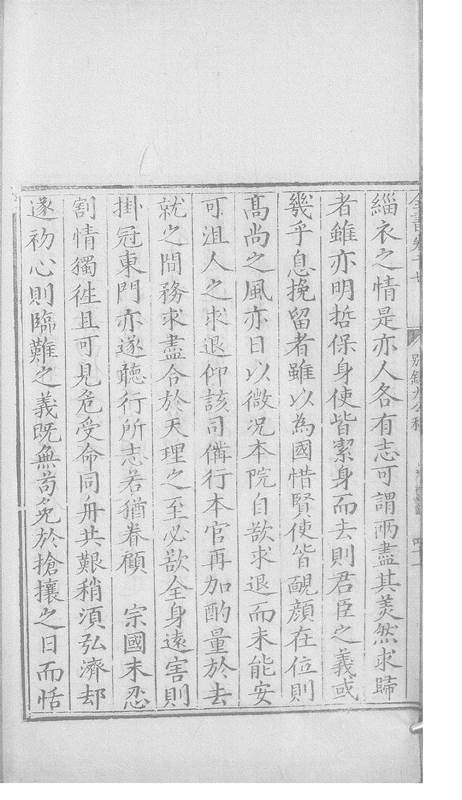 緇衣之情是亦人各有志可謂兩盡其美然求歸
者雖亦明哲保身使皆潔身而去則君臣之義或
幾乎息挽留者雖以為國惜賢使皆靦顔在位則
髙尚之風亦日以微况本院自欲求退而未能安
可沮人之求退仰該司備行本官再加酌量於去
就之間務求盡合於天理之至必欲全身逺害則
掛冠東門亦遂聽行所志若猶眷顧 宗國未忍
割情獨徃且可見危受命同舟共艱稍須弘濟却
遂初心則臨難之義既無茍免於搶攘之日而恬